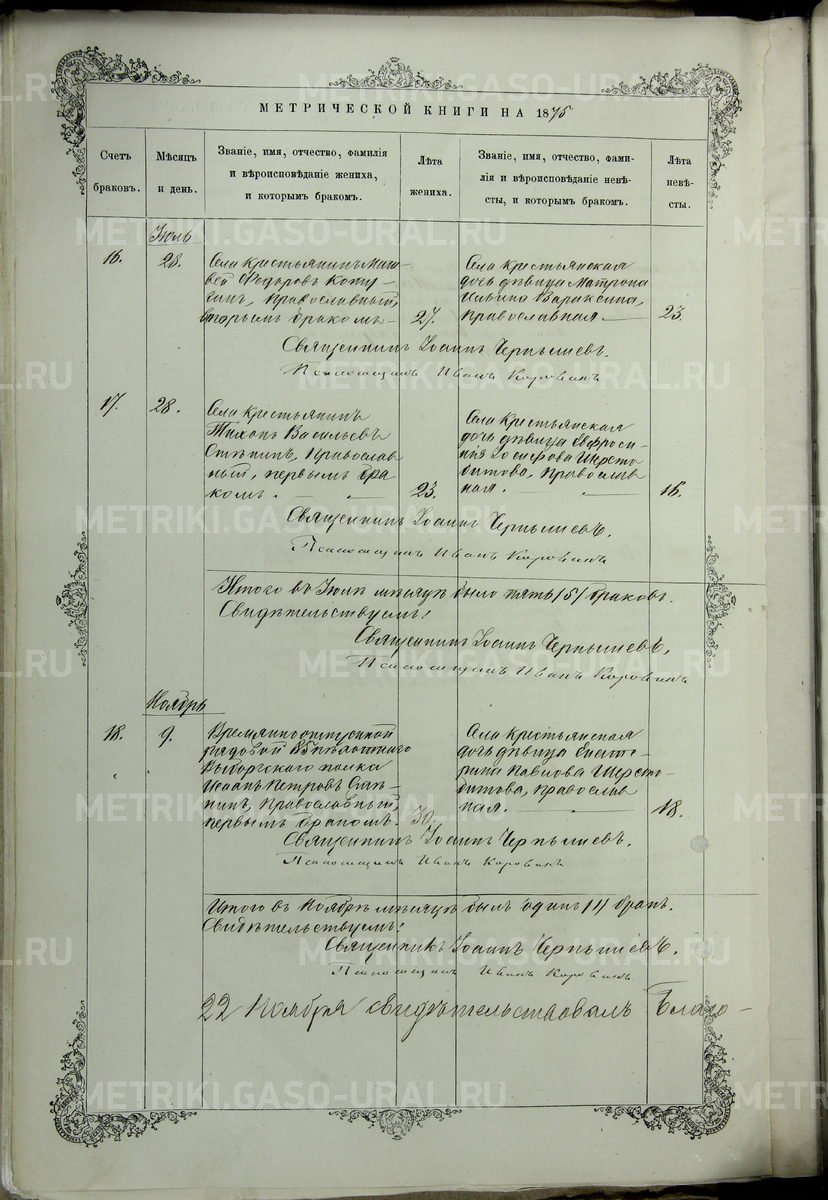 МЕТРИЧЕСКОЙ КНИГИ НА 1875
Счетъ браковъ.
Мѣсяцъ и день.
Званіе, имя, отчество, фамилія
и вѣроисповѣданіе жениха,
и которымъ бракомъ.
Лѣта жениха.
Званіе, имя, отчество, фами-
лія и вѣроисповѣданіе невѣ-
сты, и которымъ бракомъ.
Лѣта невѣ-
сты.
Іюль
16.
28.
Села крестьянинъ Мат-
вей Ѳедоровъ
Православный,
вторымъ бракомъ-
27.
Села крестьянская
дочь дѣвица Матрона
Ильина Вараксина,
Православная.
23.
Священникъ Іоаннъ Чернышевъ.
Псаломщикъ Иванъ Коровинъ
17.
28.
Села крестьянинъ
Тихонъ Васильевъ
Стѣнинъ, Православ
ный, первымъ бра
комъ.
23.
Села Крестьянская
дочь дѣвица Евфроси-
нія Іосифова Шерсто
битова, Православ
ная.
16.
Священникъ Іоаннъ Чернышевъ.
Псаломщикъ Иванъ Коровинъ
Итого въ Іюлѣ мѣсяцѣ было пять /5/ браковъ.
Свидѣтельствуемъ:
Священникъ Іоаннъ Чернышевъ.
Псаломщикъ Иванъ Коровинъ
Ноябрь
18.
9.
Временно отпускной
рядовой 85 пѣхотнаго
Выборгскаго полка
Иванъ Петровъ Стѣ-
нинъ, Православный,
первымъ бракомъ.
30.
Села Крестьянская
дочь дѣвица Екате-
рина Павлова Шерсто-
битова, Православ
ная.
18.
Священникъ Іоаннъ Чернышевъ.
Псаломщикъ Иванъ Коровинъ
Итого въ Ноябрѣ мѣсяцѣ былъ одинъ /1/ бракъ.
Свидѣтельствуемъ:
Священникъ Іоаннъ Чернышевъ.
Псаломщикъ Иванъ Коровинъ
22 Ноября свидѣтельствовалъ Благо-
METRIKI.GASO-URAL.RU